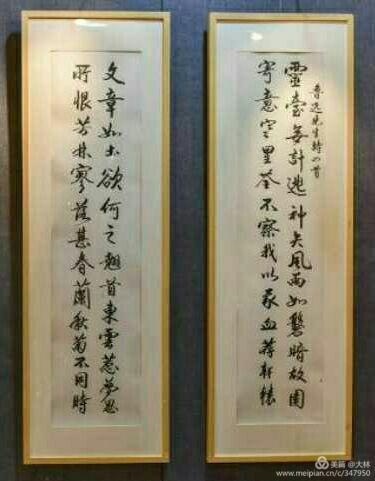 靈臺無計逃神矢風雨如磐暗故園
魯迅先生詩四首
寄意寒星荃不察我以我血薦軒轅
文章如土欲何之翹首東雲惹夢思
所恨芳林寥落甚春蘭秋菊不同時
美篇 @大林
www.meipian.cn/c/347950